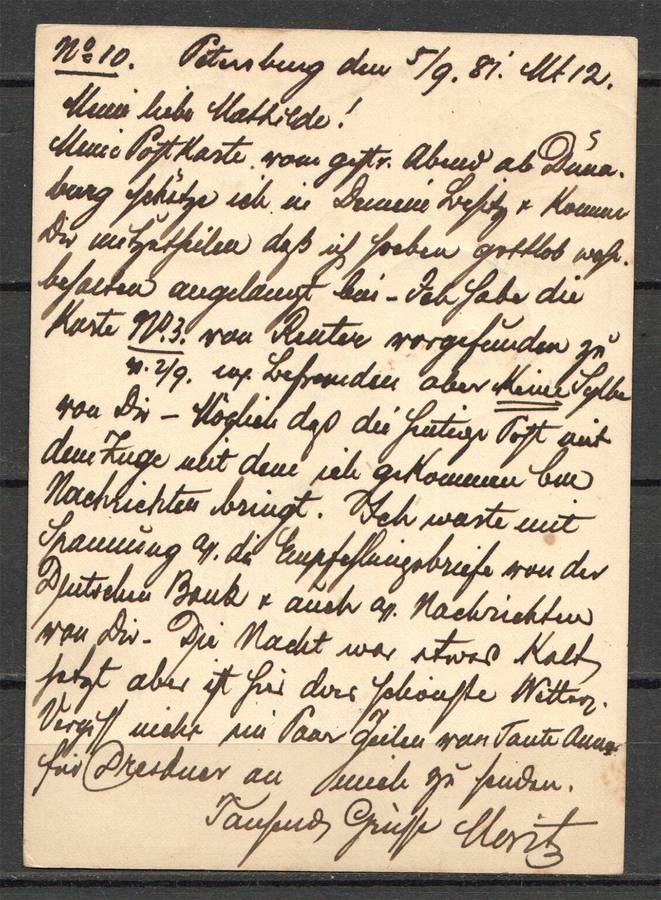 No 10. Petersburg den 5/9. 81. Mt 12.
Meine liebe Mathilde!
Meine Postkarte vom gestr. Abend ab Düna-
burg schätze ich in Deinem Besitz & komme
Dir mitzutheilen daß ich soeben gottlob wohl-
behalten angelangt bin – Ich habe die
Karte No. 3. von Reuter vorgefunden zu
v. 2/9. Befremden aber keine Sylbe
von Dir – Möglich daß die heutige Post mit
dem Zuge mit dem ich gekommen bin
Nachrichten bringt. Ich warte mit
Spannung auf die Empfehlungsbriefe von der
Deutschen Bank & auch auf Nachrichten
von Dir – Die Nacht war etwas kalt,
jetzt aber ist hier das schönste Wetter.
Vergiß nicht ein Paar Zeilen von Tante Anna
für Dresdner an mich zu senden.
Tausend Grüsse Moritz